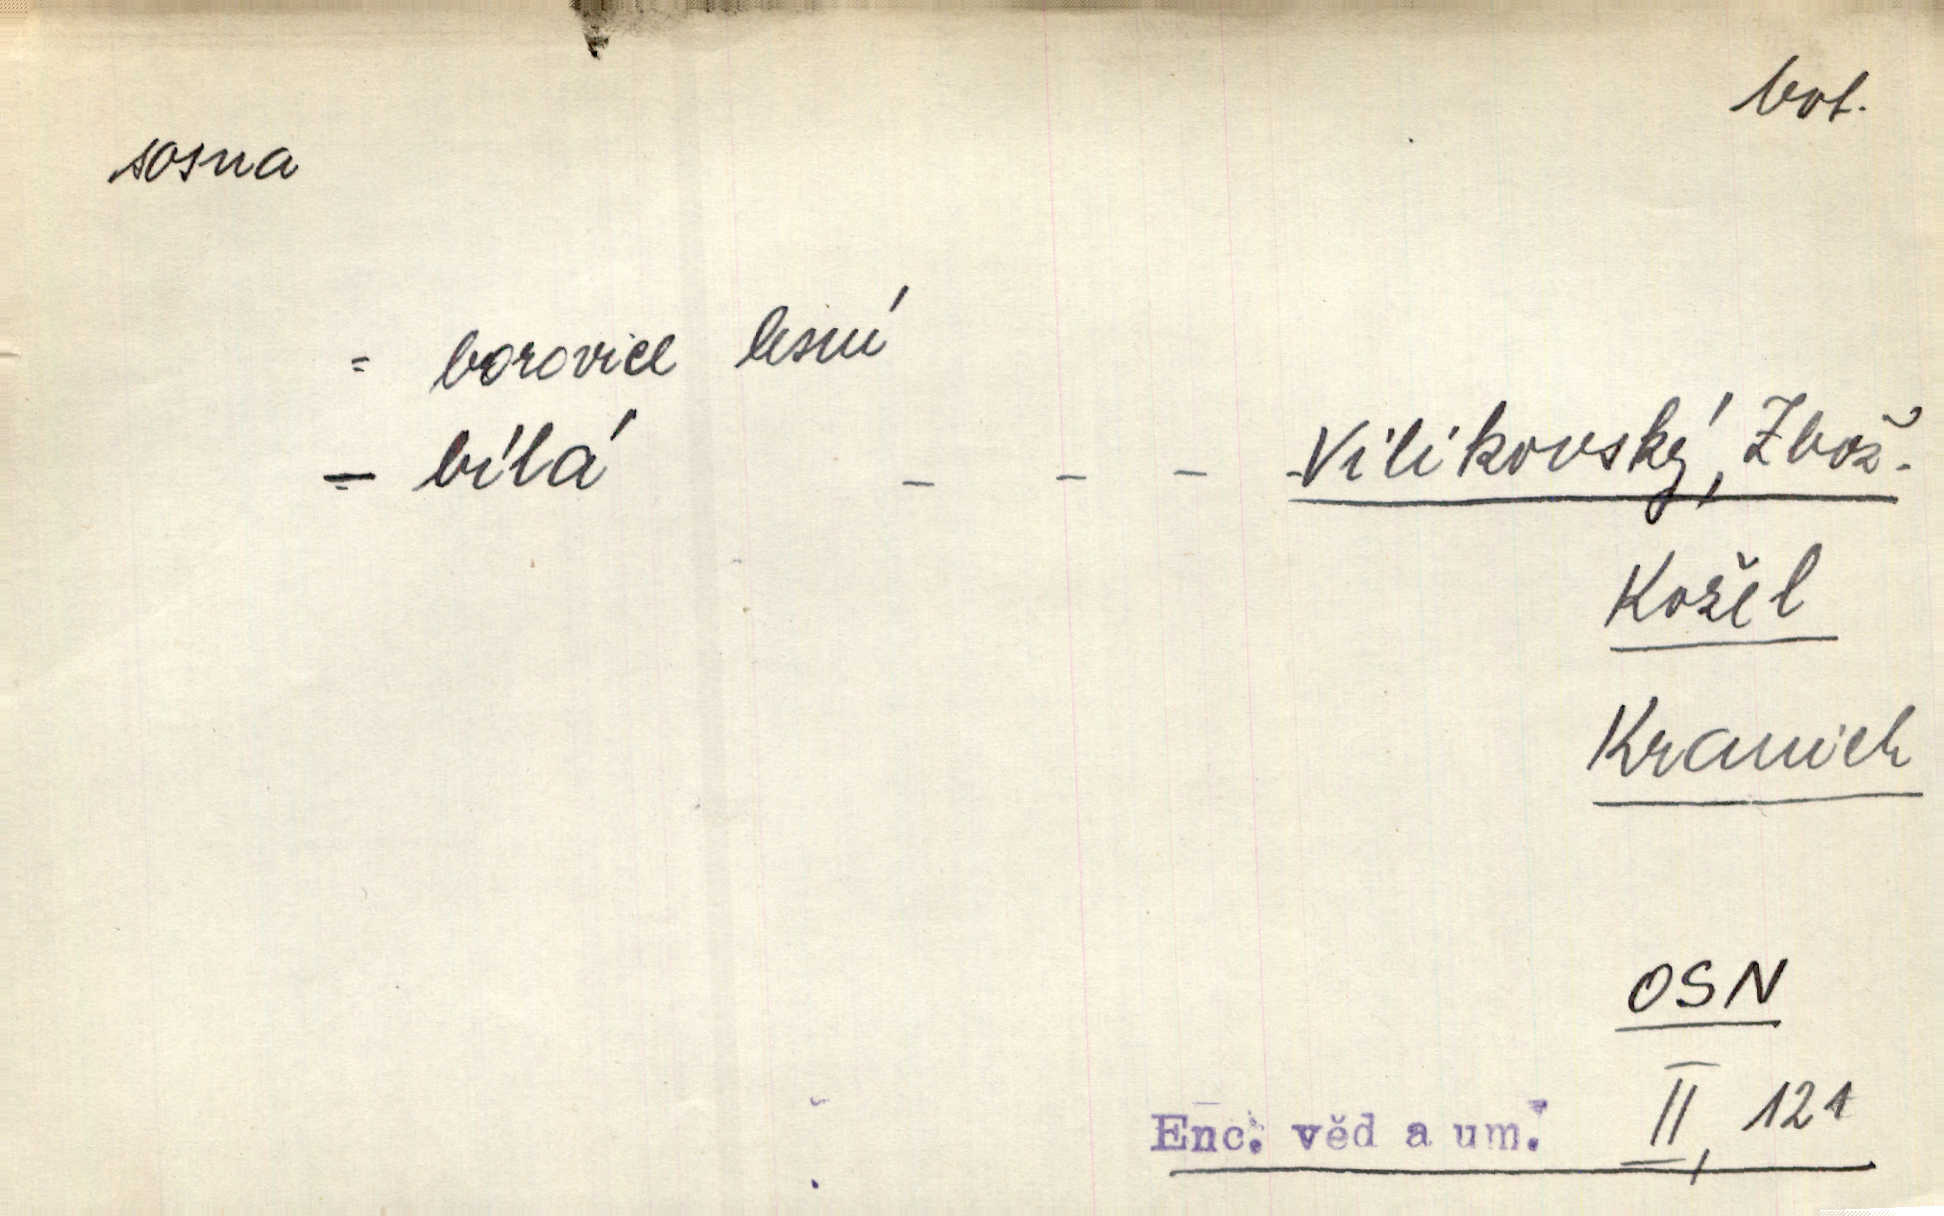 bot.
sosna
= borovice lesní
= bílá - - - Vilikovský, Zbož.
Kožel
Kranich
OSN
Enc. věd a um. II, 121